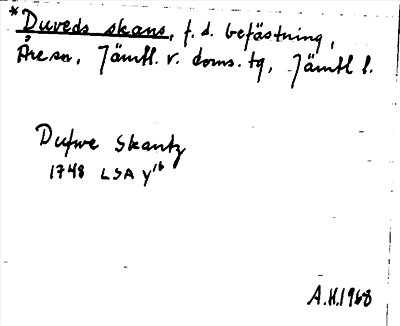 *Duveds skans, f. d. befästning,
Åre sn, Jämtl. v. doms. tg, Jämtl l.
Dufwe Skantz
1748 LSA Y16
A.H. 1968